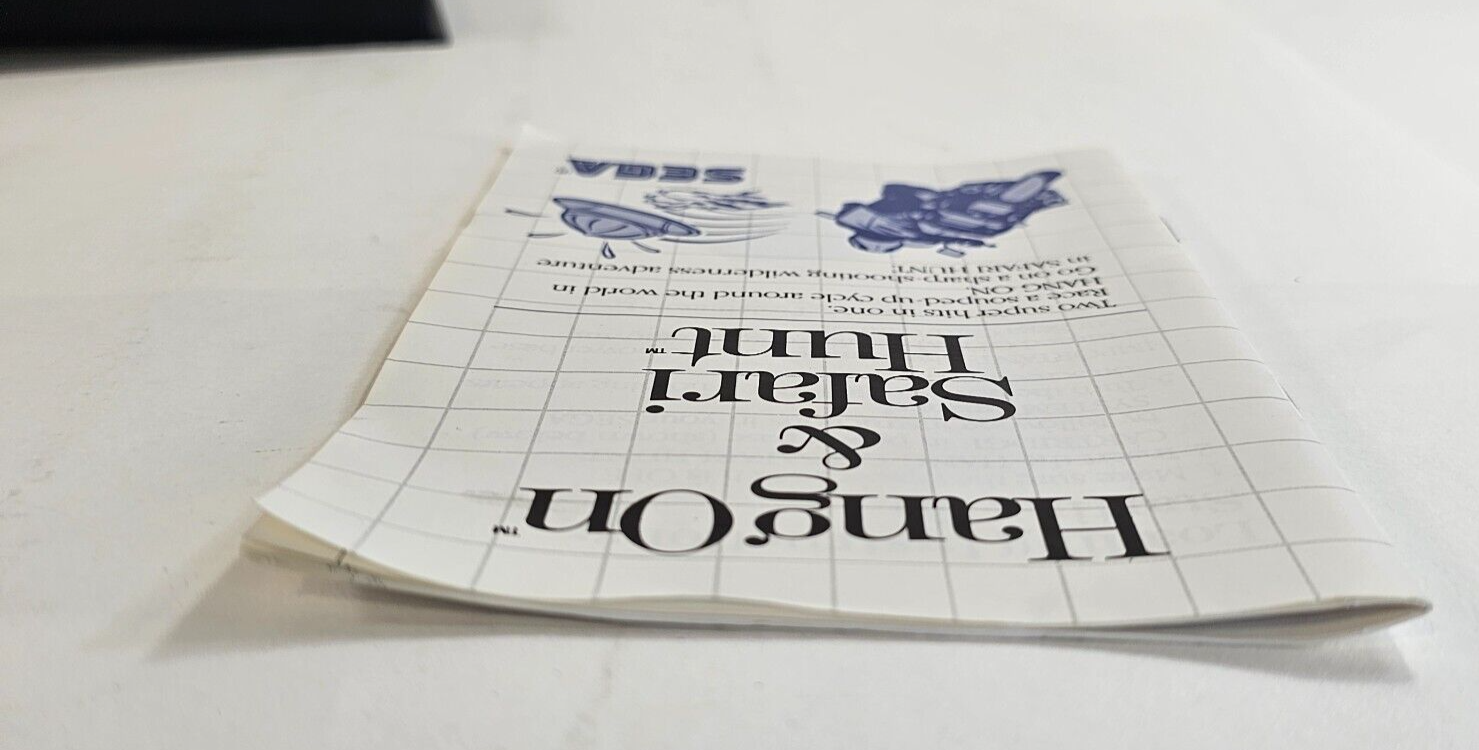 Hang On™
&
Safari
Hunt™
Two super hits in one.
Race a souped-up cycle around the world in
HANG ON.
Go on a sharp-shooting wilderness adventure
in SAFARI HUNT!
SEGA®